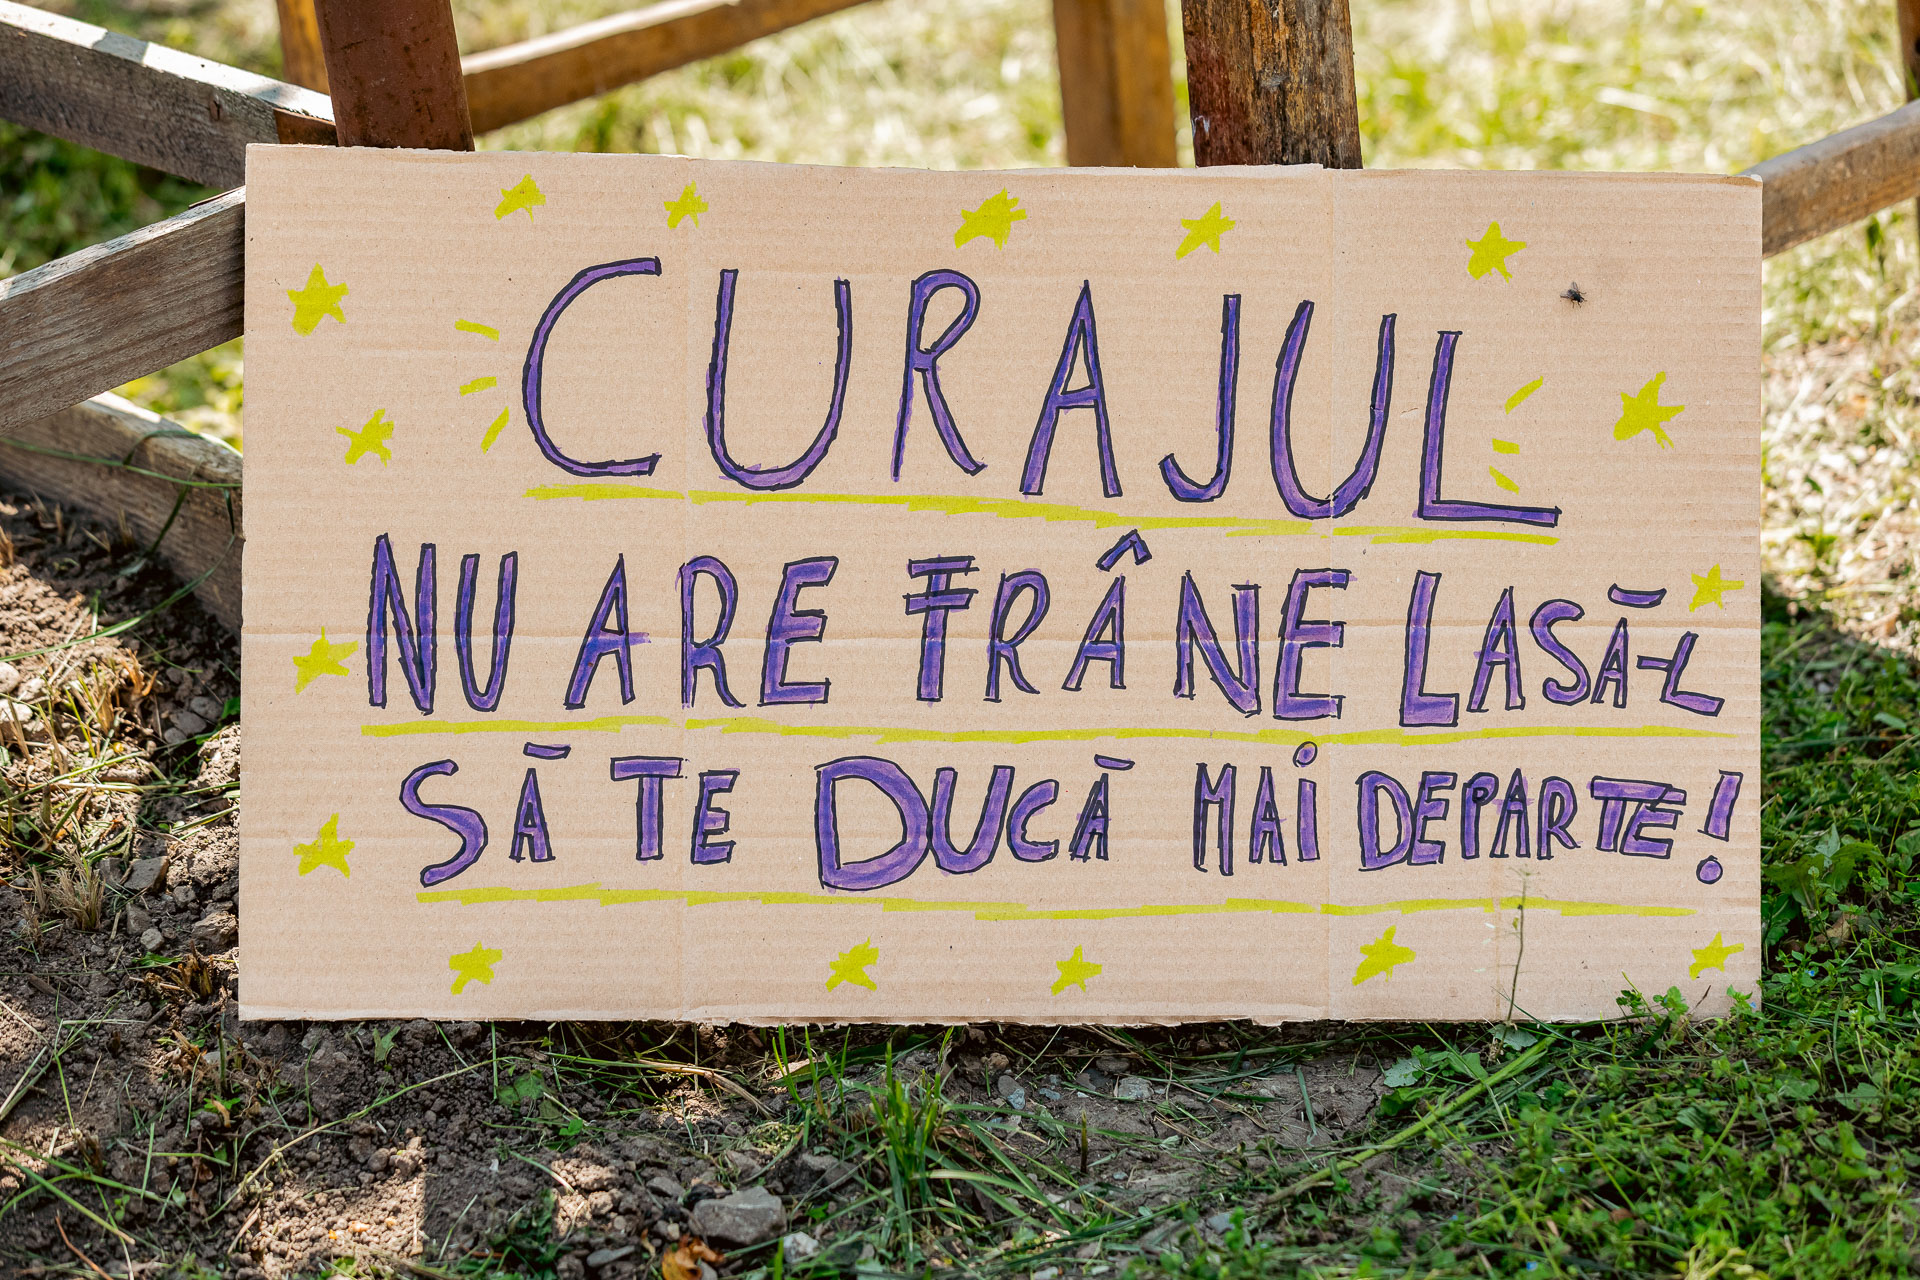 CURAJUL
NU ARE FRÂNE LASĂ-L
SĂ TE DUCĂ MAi DEPARTE!